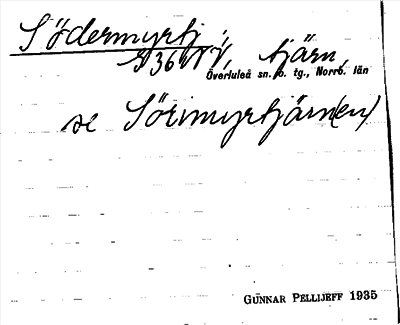 Södermyrtj;
tjärn,
Överluleå sn. o. tg., Norrb. län
se Sörimyrtjärn(en)
GUNNAR PELLIJEFF 1935